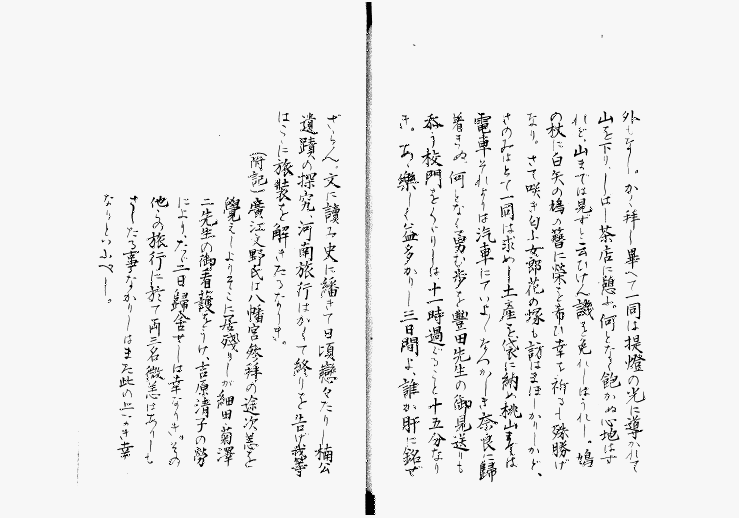 外もなし。かく拜し畢へて一同は提燈の光に導かれて
山を下りしはし茶店に憩ふ。何となく飽かぬ心地はす
れど、山までは見ずと云ひけん譏を免れしはうれし。鳩
の杖に白矢の鳩の簪に榮を希ひ幸を祈るも殊勝げ
なり。さて咲き匂ふ女郎花の塚も訪はまほしかりしかど、
さのみはとて一同は求めし土産を袋に納め桃山までは
電車それよりは汽車にていよ〳〵なつかしき奈良に歸
着きぬ、何となく勇む歩を豐田先生の御見送りも
添う校門をくゞりしは、十一時過ぐること十五分なり
き。あゝ樂しく益多かりし三日間よ、誰か肝に銘ぜ
ざらん、文に讀み史に繙きて日頃戀々たりし楠公
遺蹟の探究、河南旅行はかくて終りを告げ我等
はこゝに旅裝を解きたるなりき。
(附記)廣江文野氏は八幡宮參拜の途次恙を
覺えしよりそこに居殘りしが細田、菊澤
二先生の御看護をうけ、吉原清子の勞
によりたゞ三日歸舍せしは幸なりき。その
他この旅行に於て両三名微恙はありしも
さしたる事なかりしはまた此の上なき幸
なりといふべし。